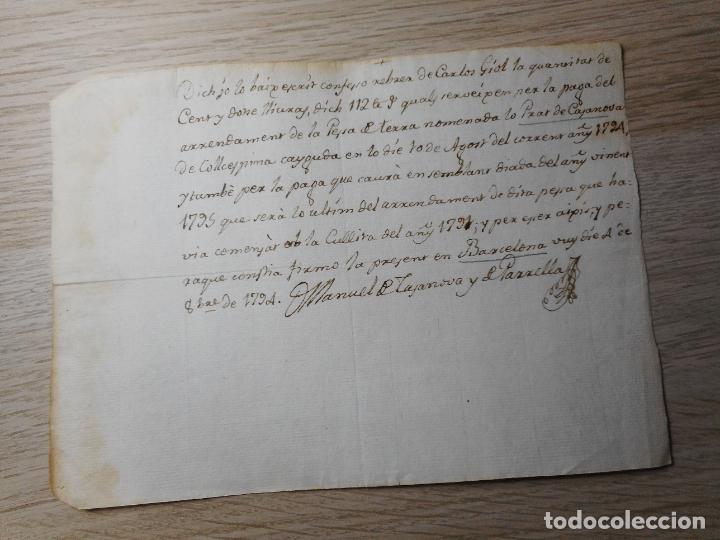 Dich jo lo baix escrit confesso rebrer de Carlos Giol la quantitat de
Cent y dotse lliuras, dich 112 ll quals serveixen per la paga del
arrendament de la Pessa de terra nomenada lo Prat de Casanova
de Collcespina cayguda en lo die 10 de Agost del corrent añy 1794,
y també per la paga que caurà en semblans diada del añy vinent
1795 que serà lo ultim del arrendament de dita pessa que ha-
via comensat ab la Cullita del añy 1791, y per eser aixis, y pe-
raque constia firmo la present en Barcelona vuy die 4 de
8bre de 1794. Manuel de Casanova y de Parrella
todocoleccion